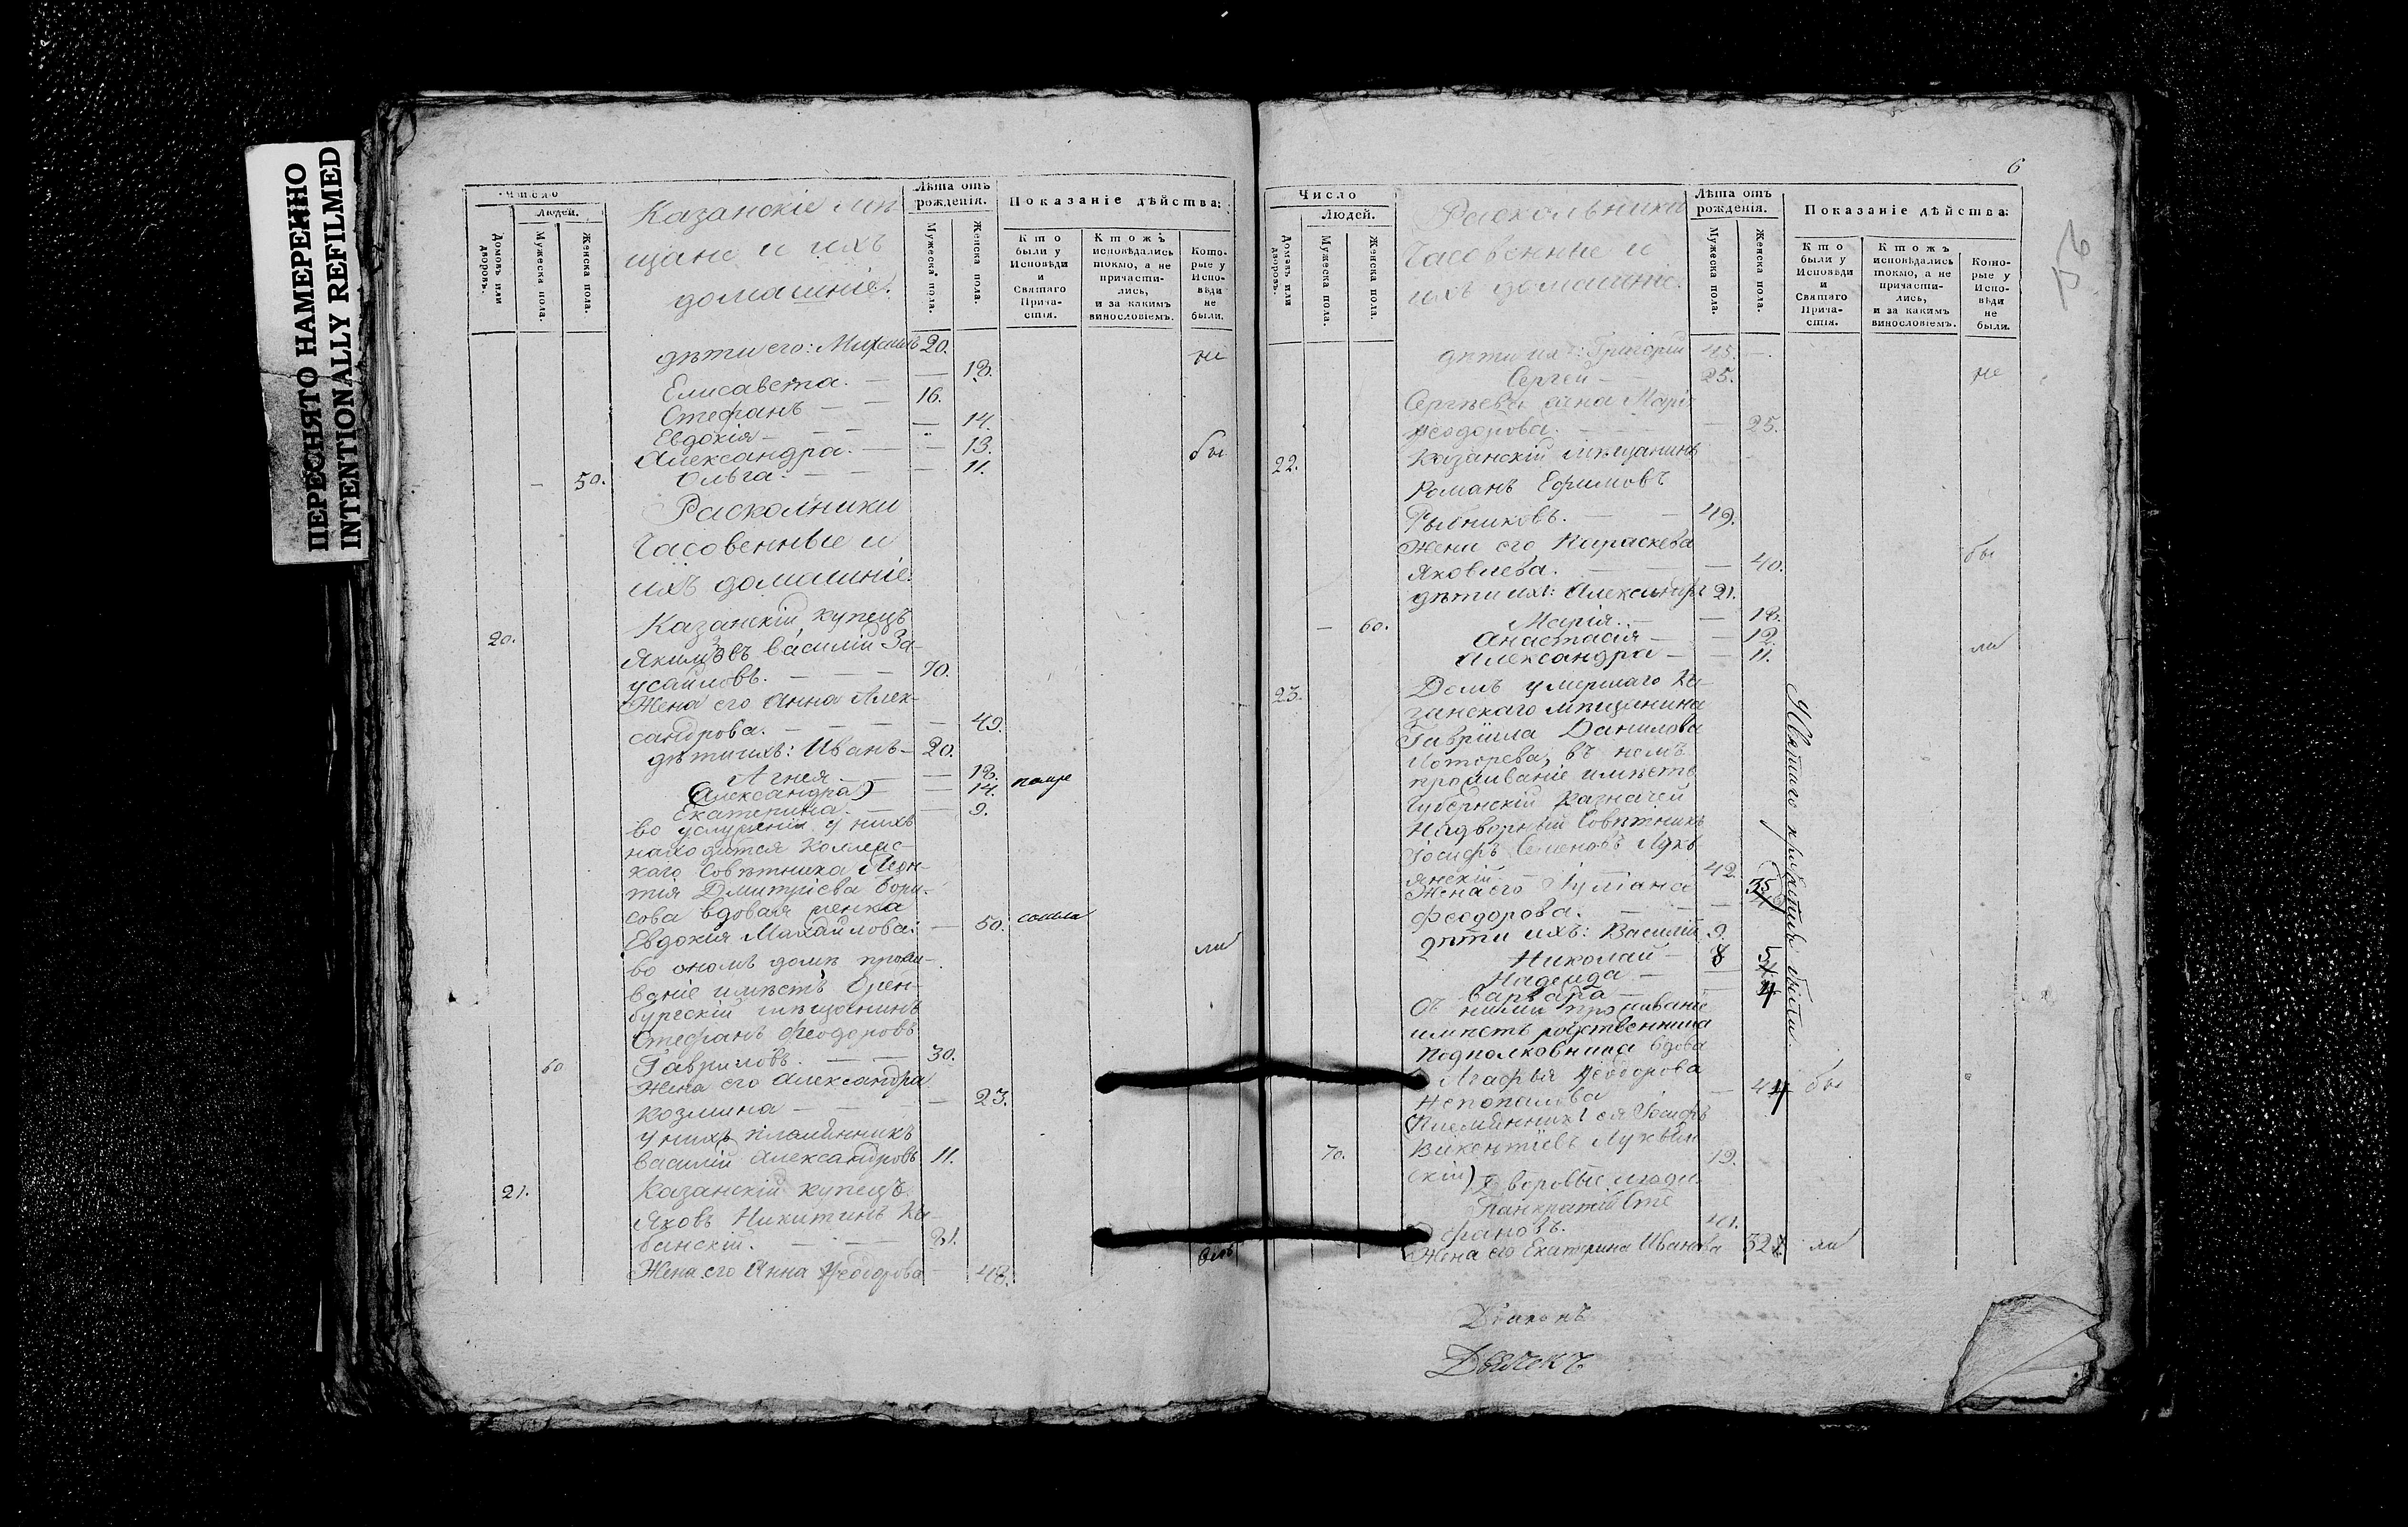 ПЕРЕСНЯТО НАМЕРЕННО
INTENTIONALLY REFILMED
Число
Людей.
Домовъ или дворовъ.
Мужеска пола.
Женска пола.
Казанскіе мѣ
щане и ихъ
домашніе.
Лѣта отъ
рожденія.
Мужеска пола.
Женска пола.
Показаніе дѣйства:
Кто
были у
Исповѣди
и
Святаго
Прича-
стія.
Ктожъ
исповѣдались
токмо, а не
причасти-
лись,
и за какимъ
винословіемъ.
Кото-
рые у
Испо-
вѣди
не
были.
дѣти его: Михаилъ 20. не
Елисавета. — — 18.
Стефанъ — — 16.
Евдокія — — — 14.
Александра. — — 13. бы
— 50. Ольга. — — — 11.
Расколники
Часовенные и
ихъ домашніе.
20. Казанскій купецъ
Василій За-
усайловъ. — — — 70.
Жена его Анна Алек-
сандрова. — — — — 49.
дѣти ихъ: Иванъ — 20.
Агнея — — — 18.
(Александра) — — 14.
Екатерина. — — 9.
во услуженіи у нихъ
находится Коллеж-
каго Совѣтника Леон-
тія Дмитріева Бори-
сова вдовая женка
Евдокія Михайлова: — 50.
ли
во ономъ домѣ прожи-
ваніе имѣетъ Орен-
бургскій мѣщанинъ
Стефанъ Феодоровъ
60 Гавриловъ. — — 30.
Жена его Александра
Козмина — — — — 23.
у нихъ племянникъ
Василій Александровъ 11.
21. Казанскій купецъ
Яковъ Никитинъ Ка-
банскій. — — — 81.
Жена его Анна Феодорова — 48.
6
Число
Людей.
Домовъ или дворовъ.
Мужеска пола.
Женска пола.
Раскольники
Часовенные и
ихъ домашніе.
Лѣта отъ
рожденія.
Мужеска пола.
Женска пола.
Показаніе дѣйства:
Кто
были у
Исповѣди
и
Святаго
Прича-
стія.
Ктожъ
исповѣдались
токмо, а не
причасти-
лись,
и за какимъ
винословіемъ.
Кото-
рые у
Испо-
вѣди
не
были.
дѣти ихъ: Григорій 45. —
Сергей — 25. не
Сергѣева жена Марія
Феодорова. — — — 25.
22. Казанскій мѣщанинъ
Романъ Ефимовъ
Рыбниковъ. — — 49.
Жена его Параскева
Яковлева. — — — 40. бы
дѣти ихъ: Александръ 21.
— 60. Марія. — — 18.
Анастасія — — 12.
Александра — — 11. ли
23. Домъ умершаго Ка-
занскаго мѣщанина
Гавріила Данилова
въ немъ
проживаніе имѣетъ
Губернскій Казначей
Надворный Совѣтникъ
Іосифъ Семеновъ Лукъ
янскій — 42.
Жена его Іуліана
Феодорова. — — — 35
дѣти ихъ: Василій 9.
Николай — 8
Надежда — — 5
Варвара — — 4
Съ ними проживаніе
имѣетъ родственница
Подполковника вдова
Агафья Феодорова
— 44 бы
Племянникъ ея Іосифъ
70. Викентіевъ Лукъян
скій) 19.
Дворовые люди
Панкратій Сте
фановъ. 41.
Жена его Екатерина Иванова 32 ли
Діаконъ
Дьячекъ